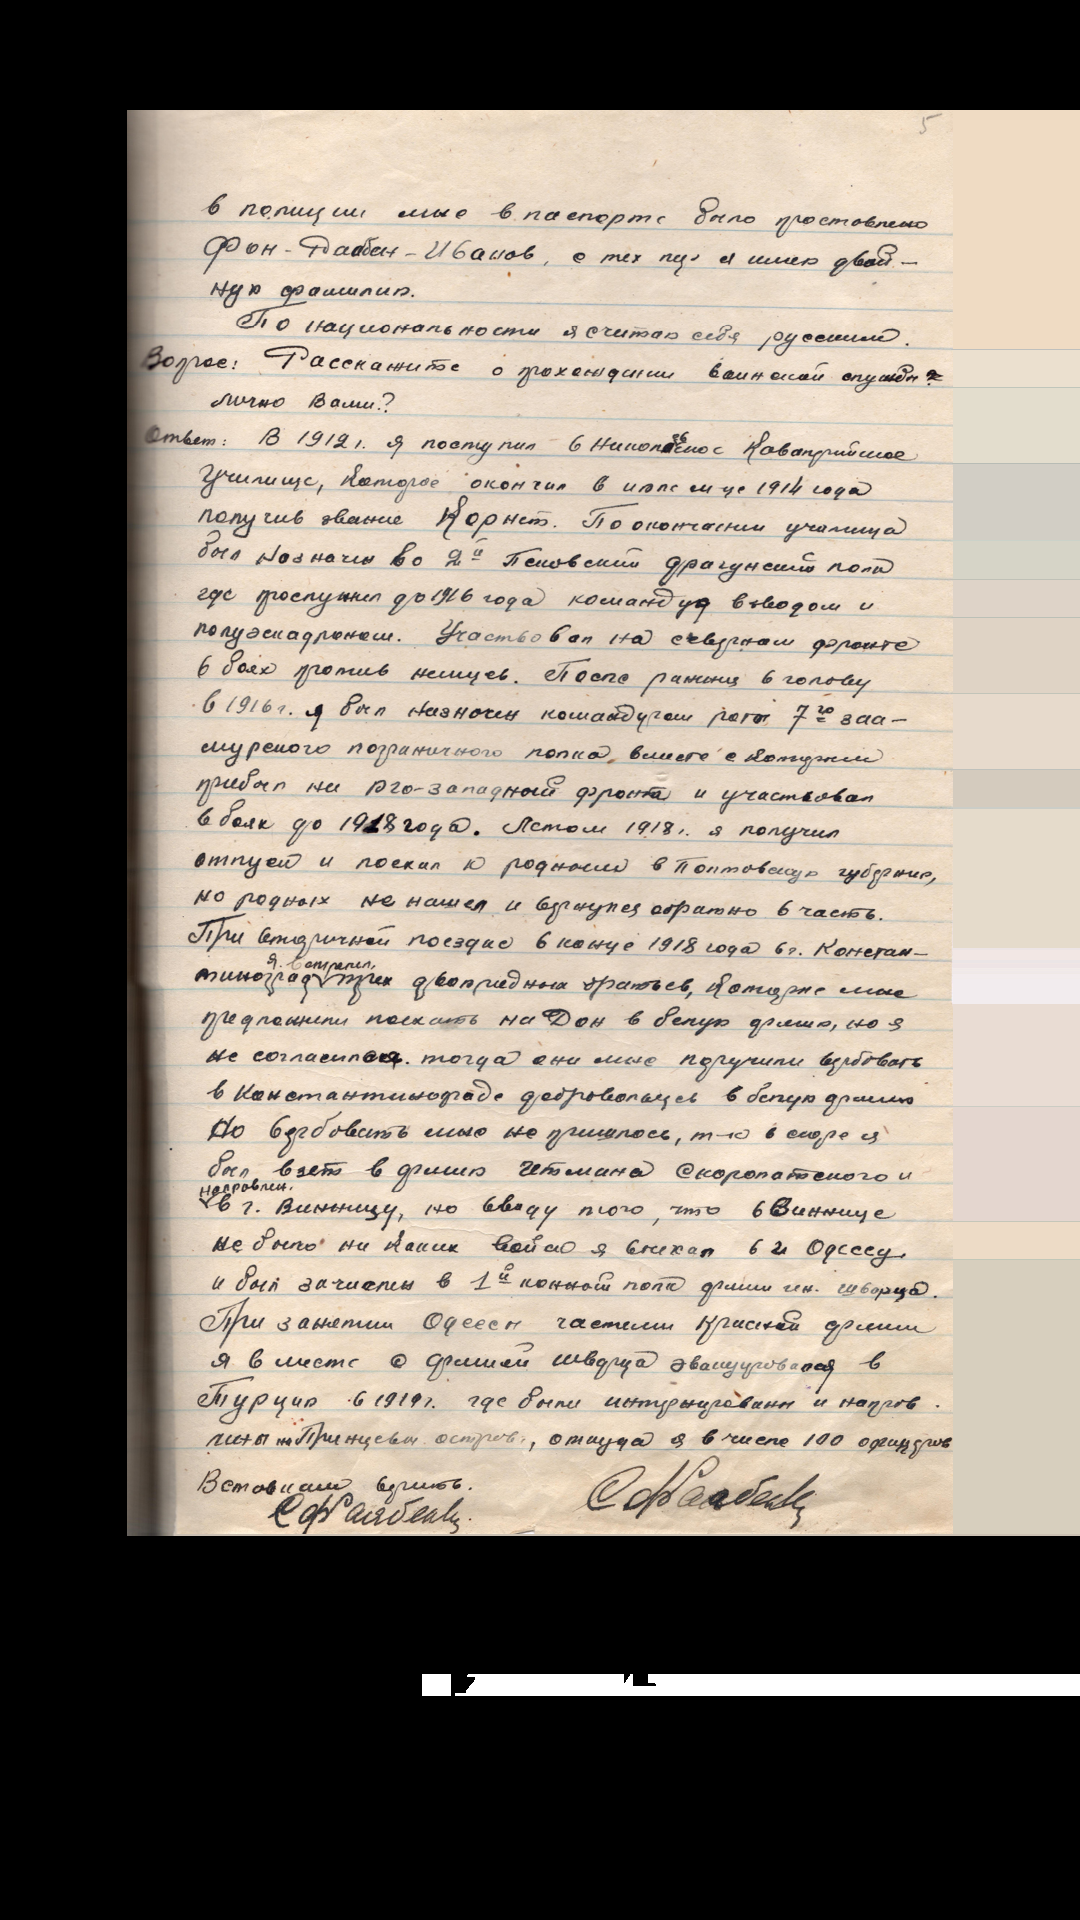 5
в полиции мне в паспорте было проставлено
Фон-Раабен-Иванов, с тех пор я имею двой-
ную фамилию.
По национальности я считаю себя русским.
Вопрос: Расскажите о прохождении воинской службы
лично Вами?
Ответ: В 1912 г. я поступил в Николаевское Кавалерийское
училище, которое окончил в июле м-це 1914 года
получив звание Корнет. По окончании училища
был назначен во 2й Псковский драгунский полк
где прослужил до 1916 года командуя взводом и
полуэскадроном. Участвовал на северном фронте
в боях против немцев. После ранения в голову
в 1916 г. я был назначен командиром роты 7го заа-
мурского пограничного полка, вместе с которым
прибыл на юго-западный фронт и участвовал
в боях до 1918 года. Летом 1918 г. я получил
отпуск и поехал к родным в Полтовскую губернию,
но родных не нашел и вернулся обратно в часть.
При вторичной поездке в конце 1918 года в г. Констан-
я встретил
тиноград трех двоюродных братьев, которые мне
предложили поехать на Дон в белую армию, но я
не согласился. тогда они мне поручили вербовать
в Константинограде добровольцев в белую армию
Но вербовать мне не пришлось, т-к в скоре я
был взят в армию гетмана Скоропатского и
направлен.
в г. Винницу, но ввиду того, что в Виннице
не было ни каких войск я выехал в г. Одессу.
и был зачислен в 1й конный полк армии ген. Шварца.
При занятии Одессы частями Красной армии
я вместе с армией Шварца эвакуировался в
Турцию в 1919 г. где были интернированы и направ
лены на Принцевы острова, откуда я в числе 100 офицеров
Вставками верить.